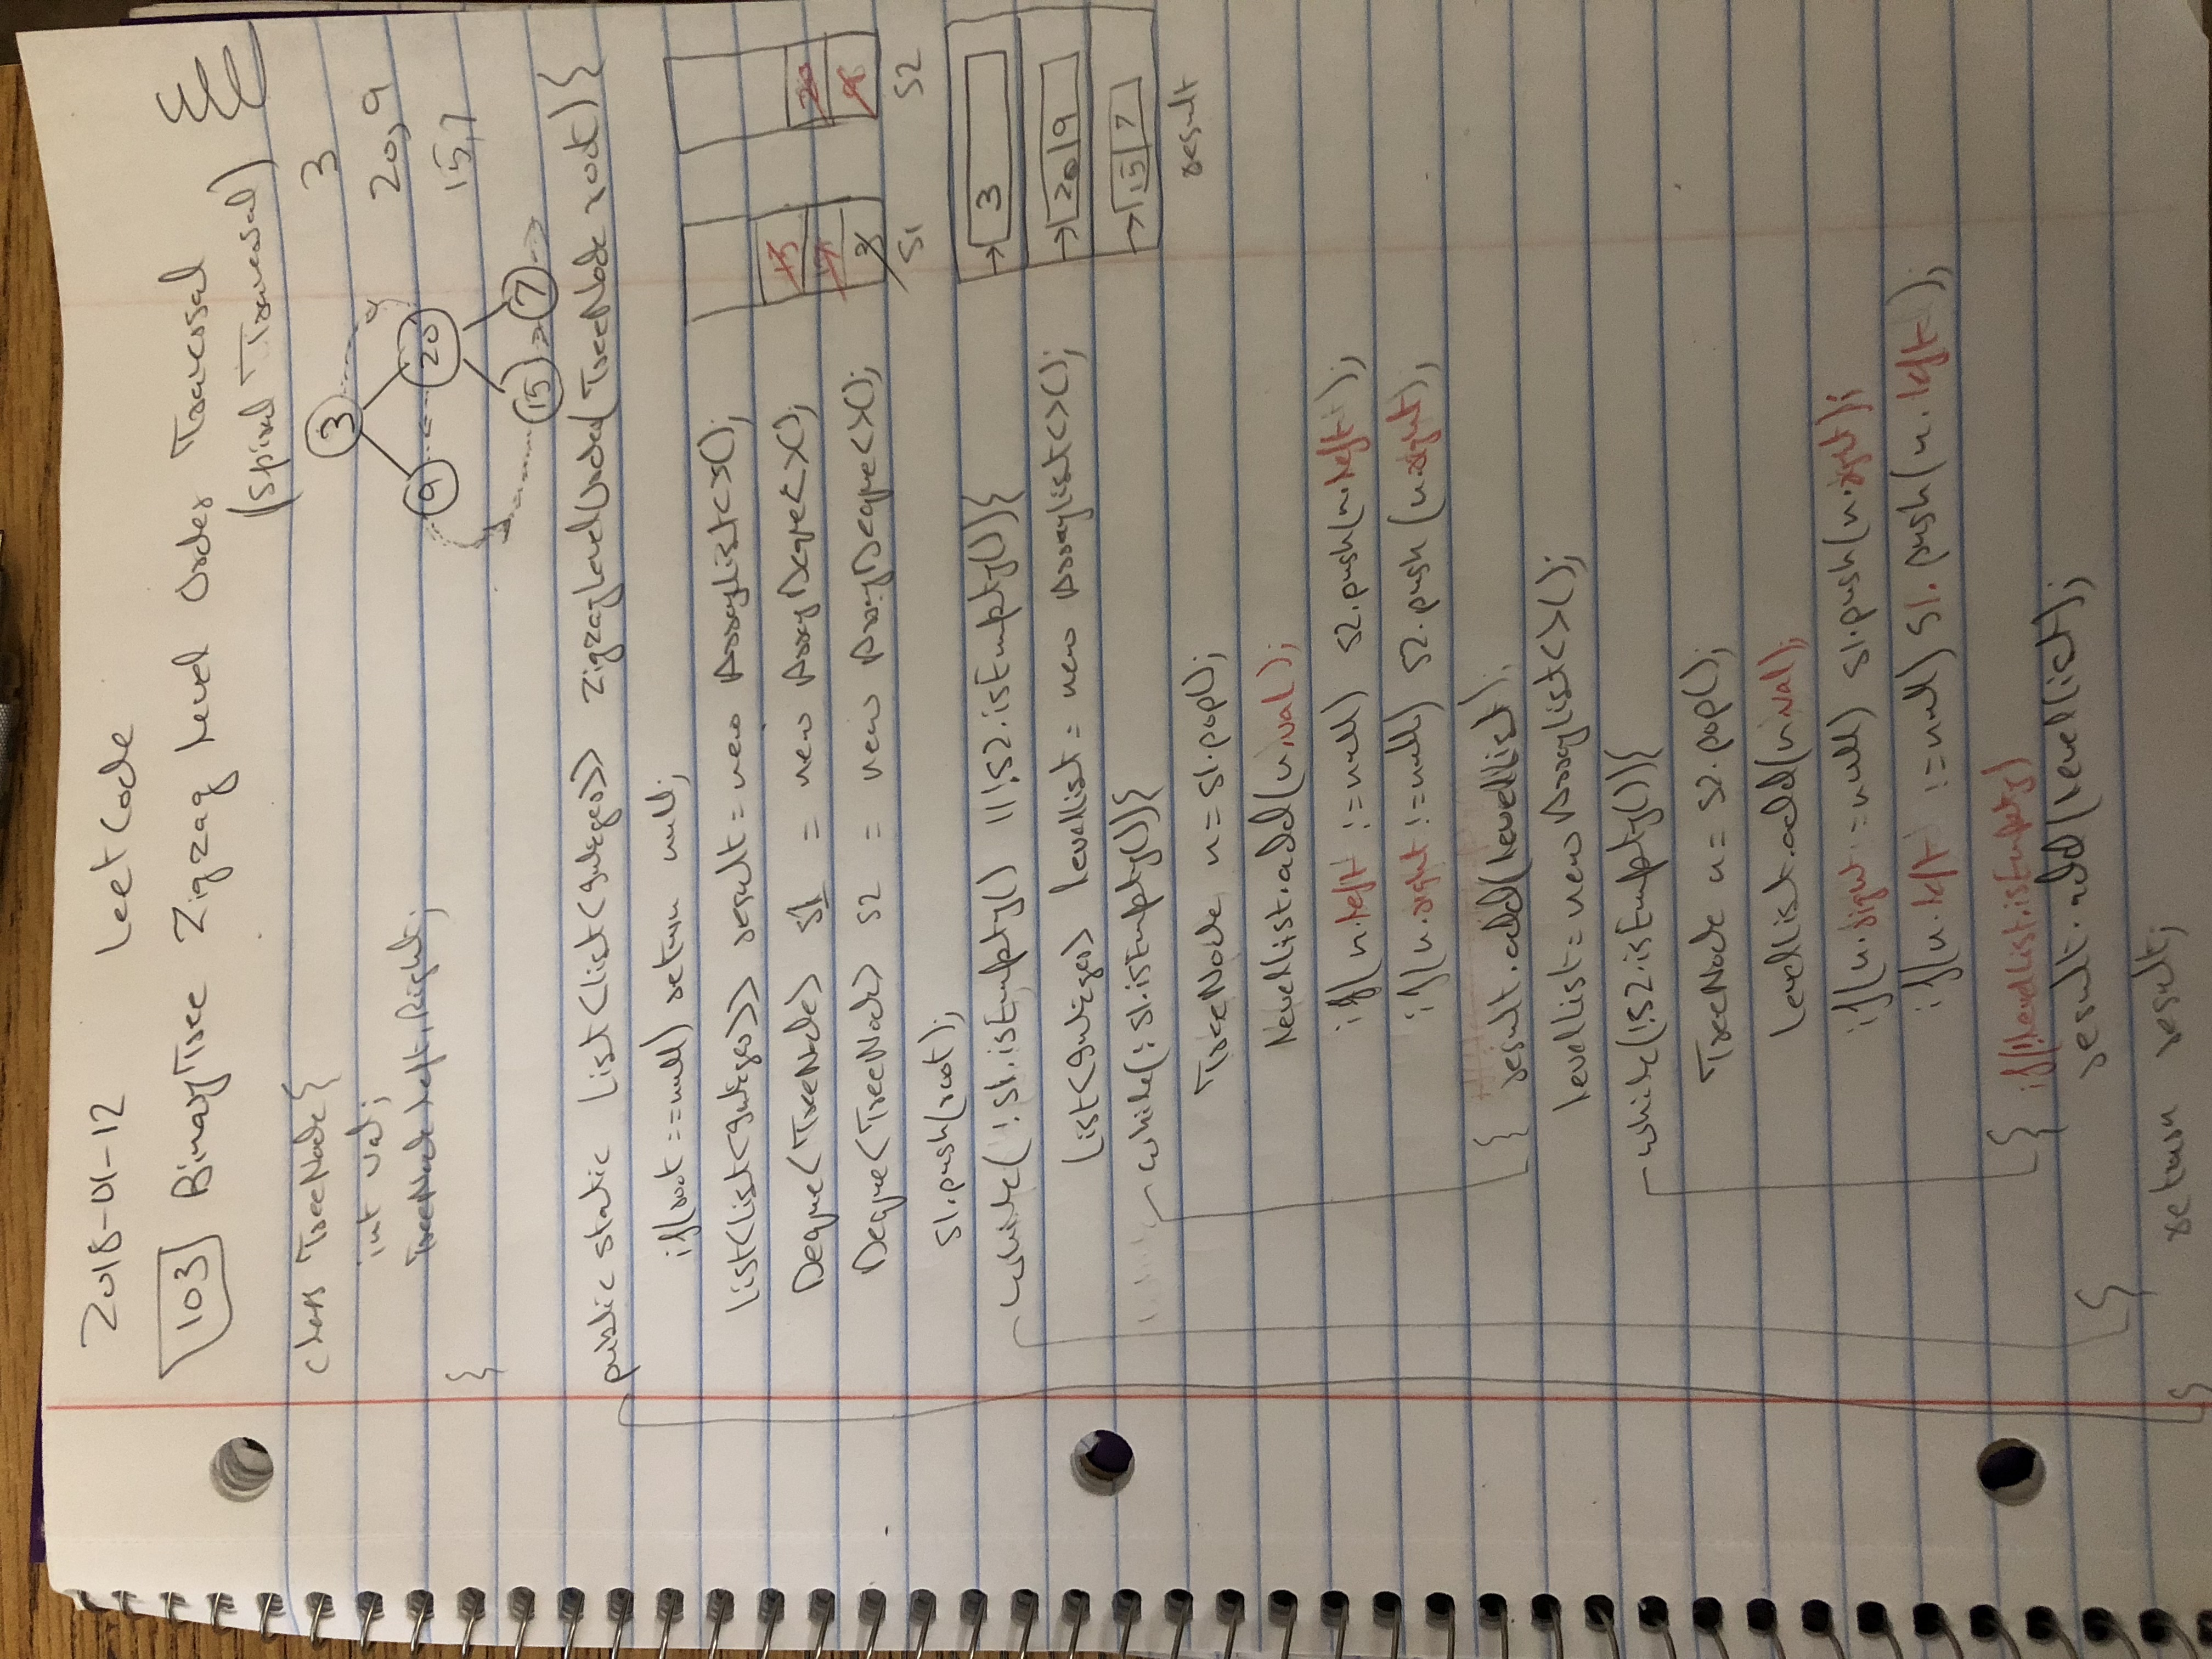 2018-01-12 LeetCode
103 Binary Tree Zigzag Level Order Traversal
(Spiral Traversal)
class TreeNode {
int val;
TreeNode left, Right;
}
3
9 20
15 7
3
20, 9
15, 7
public static List<List<Integer>> zigzagLevelOrder(TreeNode root) {
if(root ==null) return null;
List<List<Integer>> result = new ArrayList<>();
Deque<TreeNode> S1 = new ArrayDeque<>();
Deque<TreeNode> S2 = new ArrayDeque<>();
15
3
S1
20
9
S2
S1.push(root);
while( !S1.isEmpty() || !S2.isEmpty()){
3
20 9
15 7
result
List<Integer> levelList = new ArrayList<>();
while(!S1.isEmpty()){
TreeNode n = S1.pop();
levelList.add(n.val);
if(n.left !=null) S2.push(n.left);
if(n.right !=null) S2.push(n.right);
} result.add(levelList);
levelList = new ArrayList<>();
while(!S2.isEmpty()){
TreeNode n = S2.pop();
levelList.add(n.val);
if(n.right !=null) S1.push(n.right);
if(n.left !=null) S1.push(n.left);
} if(!levelList.isEmpty)
result.add(levelList);
}
return result;
}